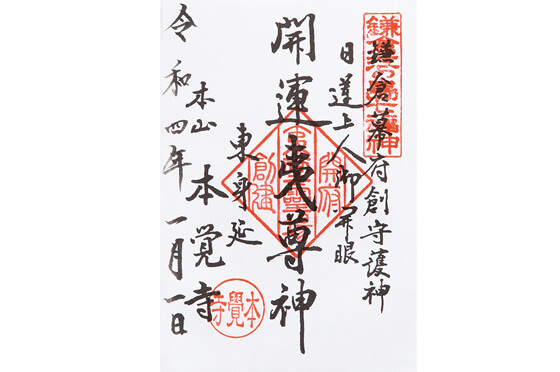 鎌倉幕府創守護神
日蓮上人御開眼
開運夷尊神
東身延
本山 本覚寺
令和四年一月一日
開府
創建
本覺寺